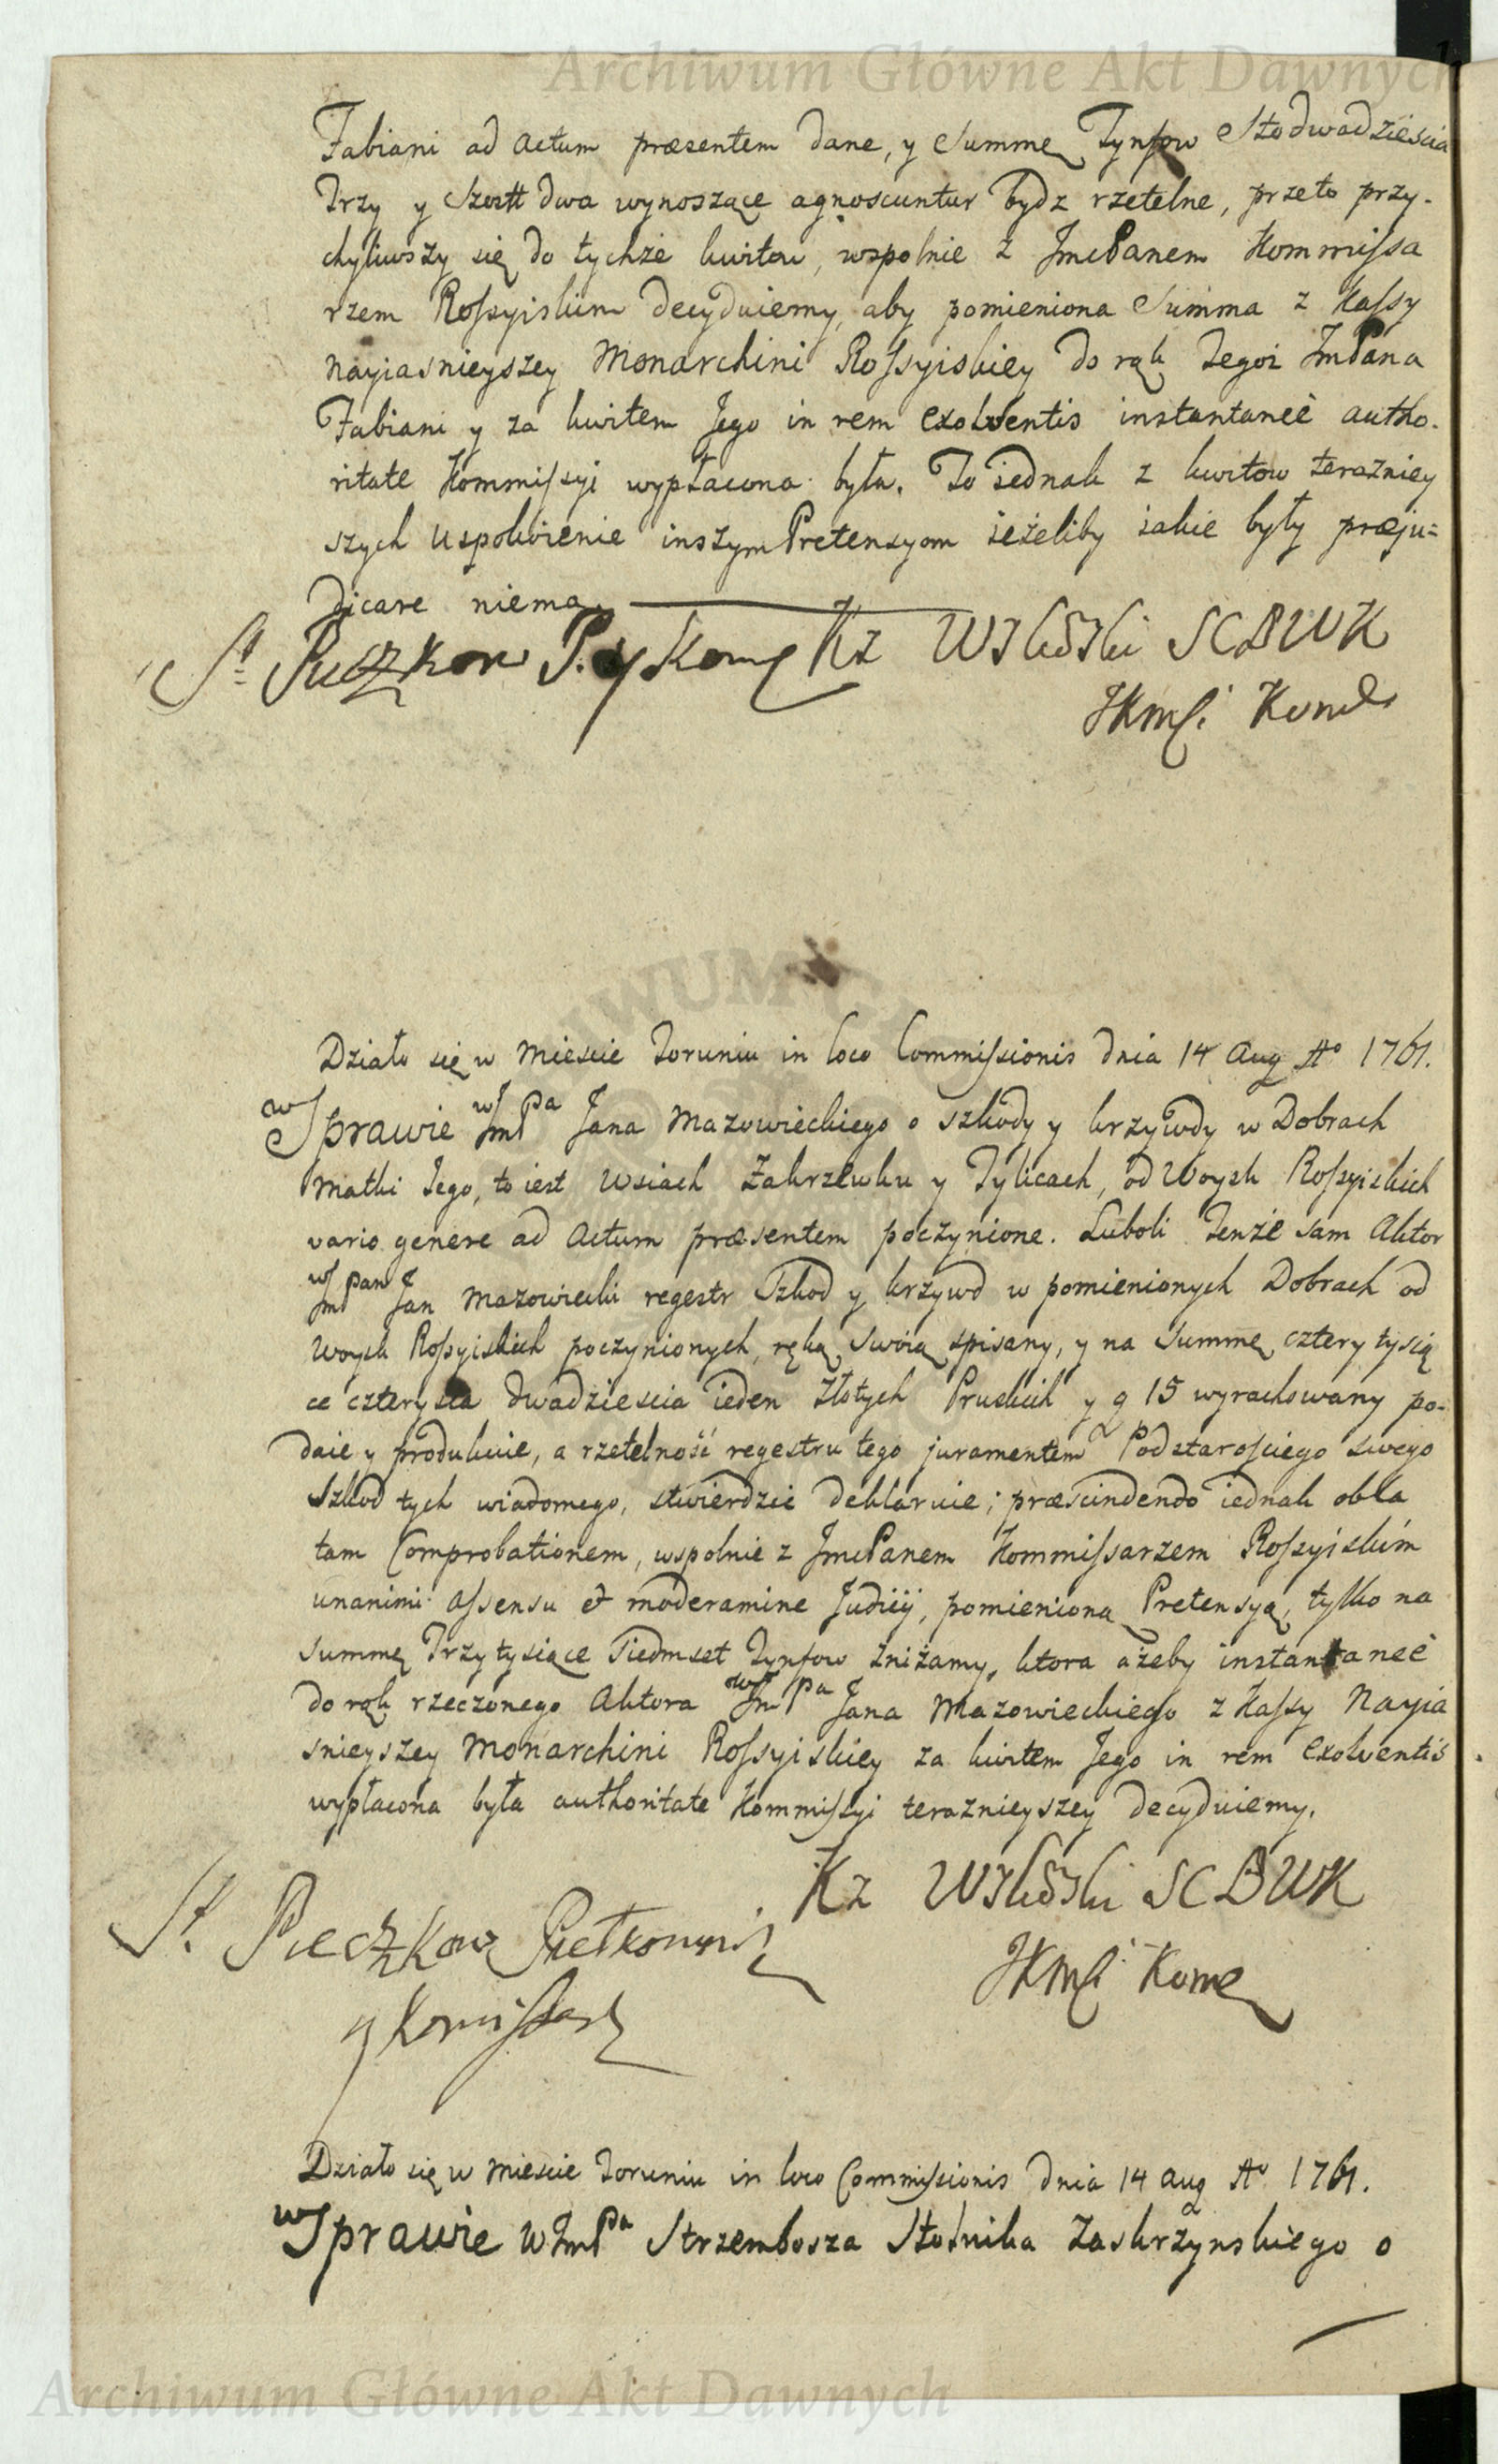 Archiwum Główne Akt Dawnych
Fabiani ad actum præsentem dane, y Summę Tynfow Stodwadzieścia
Trzy y Szostt dwa wynoszące agnoscuntur bydz rzetelne, przeto przy-
chyliwszy się do tychże kwitow, wspolnie z JmcPanem Kommissa
rzem Rossyiskim decyduiemy, aby pomieniona Summa z Kassy
Nayiasnieyszey Monarchini Rossyiskiey do rąk Tegoż JmPana
Fabiani y za kwitem Jego in rem exolventis instantaneè autho-
ritate Kommissyi wypłacona była. To iednak z kwitow teraźniey
szych uspokoienie inszym Pretensyom ieżeliby iakie były præju-
dicare niema.
St. Pieczkow P. y Kom Kz Wskoski SCBWK
JKmsci Kom
Działo się w Miescie Toruniu in loco Commissionis dnia 14 Aug Ao 1761.
w Sprawie WJmPa Jana Mazowieckiego o szkody y krzywdy w Dobrach
Matki Jego, to iest Wsiach Zakrzewku y Tylicach, od Woysk Rossyiskich
vario genere ad Actum præsentem poczynione. Luboli Tenże sam Aktor
WJmPan Jan Mazowiecki regestr Szkod y krzywd w pomienionych Dobrach od
Woysk Rossyiskich poczynionych, ręką swoią spisany, y na Summę cztery tysią
ce czterysta dwadziescia ieden Złotych Pruskich y g 15 wyrachowany po-
daie y produkuie, a rzetelność regestru tego juramentem Podstarosciego swego
Szkod tych wiadomego, stwierdzić deklaruie; præscindendo iednak obla
tam Comprobationem, wspolnie z JmcPanem Kommissarzem Rossyiskim
unanimi assensu et moderamine Judicij, pomienioną Pretensyą, tylko na
Summę Trzy tysiące Siedmset Tynfow zniżamy, ktora ażeby instantaneè
do rąk rzeczonego Aktora WJmPa Jana Mazowieckiego z Kassy Nayia
snieyszey Monarchini Rossyiskiey za kwitem Jego in rem exolventis
wypłacona była authoritate Kommissyi teraznieyszey decyduiemy.
Kz Wskoski SCBWK
St. Pieczkow
JKmsci Kom
y Komissarz
Działo się w Miescie Toruniu in loco Commissionis dnia 14 Aug Ao 1761.
w Sprawie WJmPa Strzembosza Stolnika Zaskrzynskiego o
Archiwum Główne Akt Dawnych